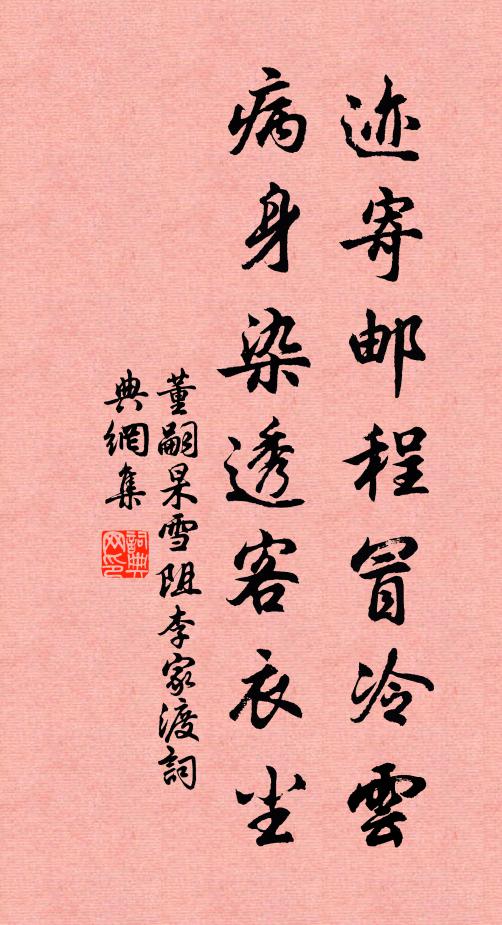 迹寄邮程冒冷雲
病身染透客衣尘
董嗣杲雪阻李家渡詞
典網集
詞典
网印